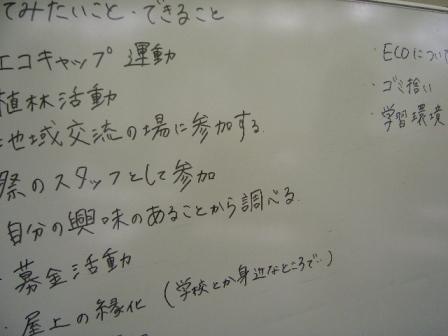 てみたいこと・できること
エコキャップ運動
植林活動
地域交流の場に参加する
祭のスタッフとして参加
自分の興味のあることから調べる
・募金活動
・屋上の緑化（学校とか身近なところで‥）
・ECOについて
・ゴミ拾い
・学習環境